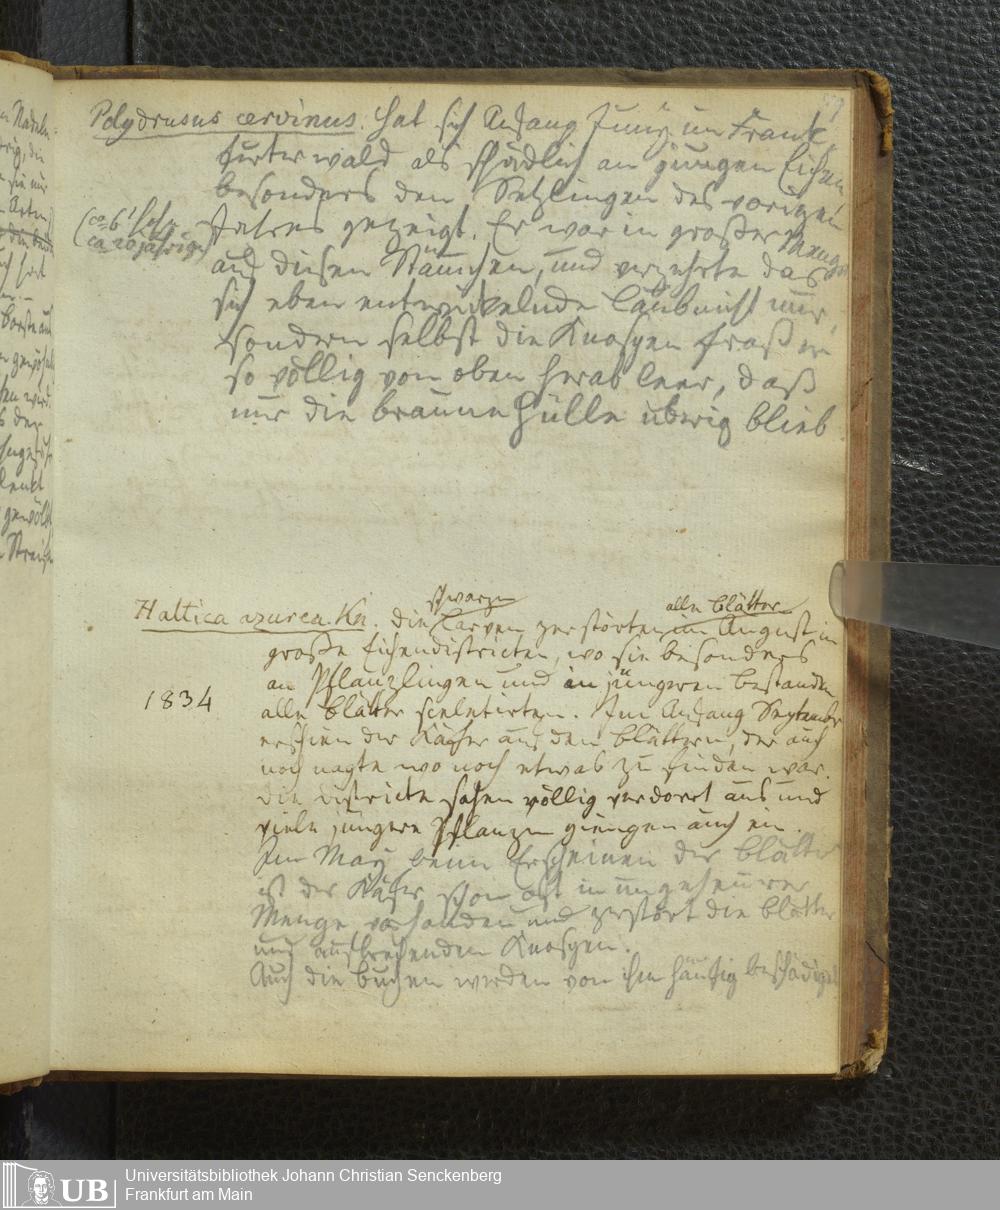 Polydrusus cervinus. Hat sich Anfang Juny im Frank
furter wald als schädlich an jungen Eichen
besonders den Setzlingen des vorigen
(ca 6' hohe
ca 20jährige)
Jahres gezeigt. Er war in großer Menge
auf diesen Bäumchen, und verzehrte das
sich eben entwickelnde Laub nicht nur,
sondern selbst die Knospen fraß er
so völlig von oben herab leer, daß
nur die braune Hülle übrig blieb
Haltica azurea. Kn. die schwarzen Larven zerstörten alle Blätter im August in
große Eichendistricten, wo sie besonders
an Pflanzlingen und in jüngeren bestanden
1834
alle Blätter sceletirten. Im Anfang September
erschien der Käfer aus den Blättern, der auch
noch nagte wo noch etwas zu finden war.
Die Districte sahen völlig verdorrt aus und
viele jüngere Pflanzen giengen auch ein.
Im May beim Erscheinen der Blätter
ist der Käfer schon oft in ungeheurer
Menge vorhanden und zerstört die Blätter
und ausbrechenden Knospen.
Auch die Buchen werden von ihm häufig beschädigt
UB
Universitätsbibliothek Johann Christian Senckenberg
Frankfurt am Main